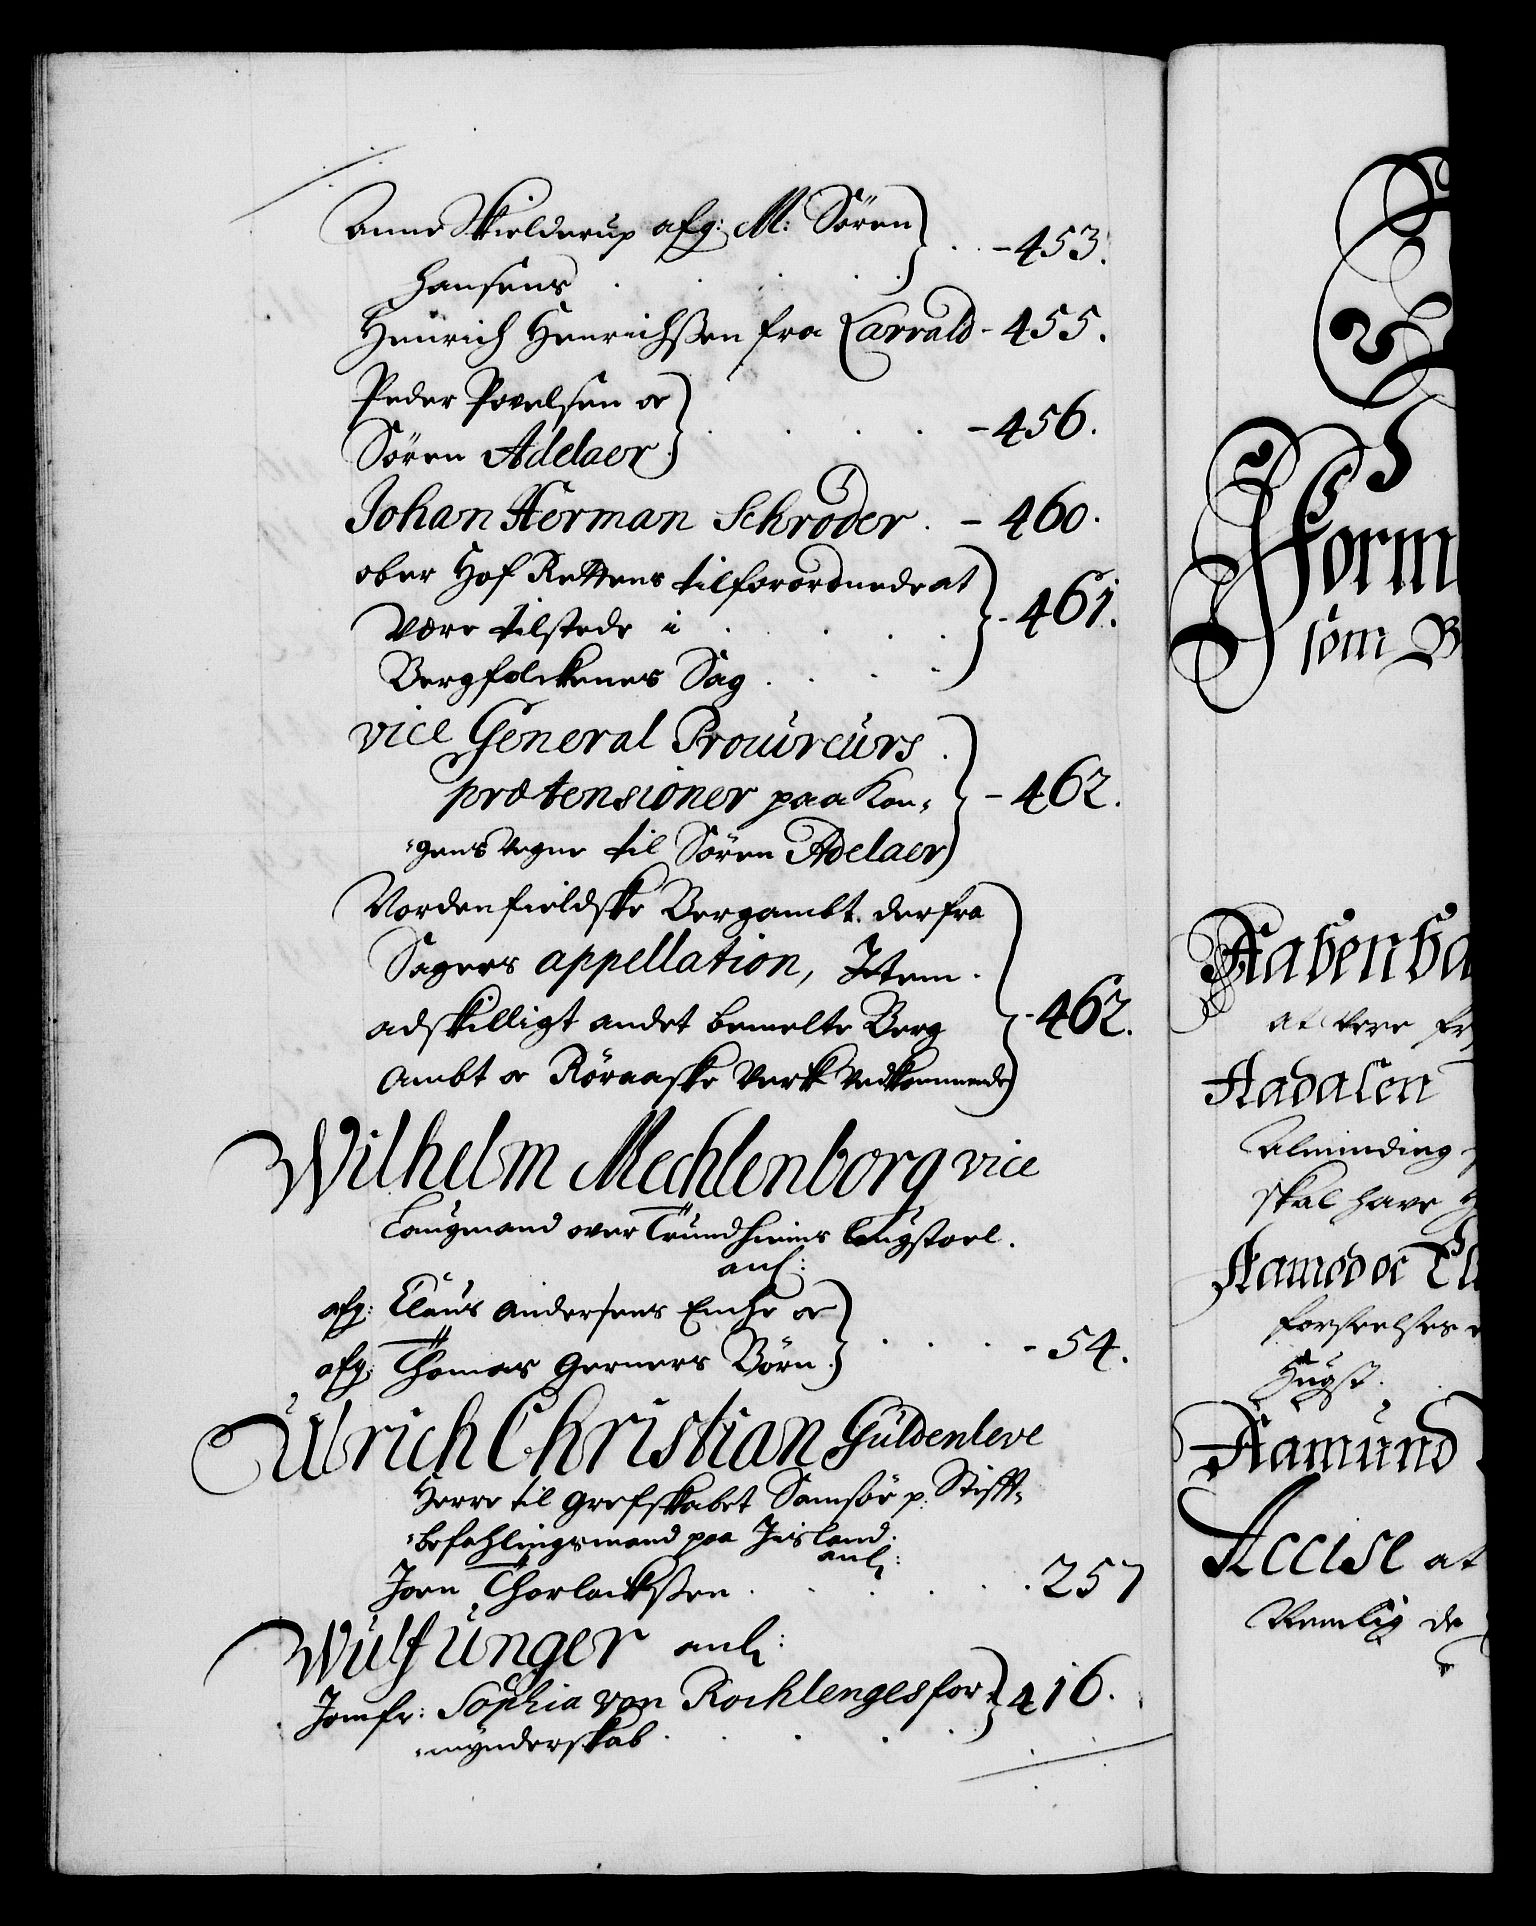 Anne Skielderup afg: M: Sören
Hansens . . . . - 453.
Henrich Henrichßen fra Carrald - 455.
Peder Povelsen oc
Sören Adelaer . . . . - 456.
Johan Herman Schröder . - 460.
ober Hof Rettens tilforordnede at
være tilstede i . . . . - 461.
Bergfolckenes Sag . . .
vice General Procureurs .
prætensioner paa Kon-
-gens vegne til Sören Adelaer - 462.
Nordenfieldske Bergambt. derfra
Sagers appellation, Item .
adskilligt andet bemelte Berg - 462.
Ambt oc Röraaske Verk vedkommende
Wilhelm Mechlenborg vice
Laugmand over Trundhiems laugstoel.
anl:
afg: Claus Andersens Encke oc
afg: Thomas Gerners Börn . . . . - 54.
Ulrich Christian Güldenleve
Herre til Grefskabet Samsöe p: Stifft-
-befahlingsmand paa Island.
anl:
Joen Thorlackßen . . . . 257
Wulf Unger anl:
Jomfr: Sophia von Rochlenges for-
-mynderskab . . . . 416.
Form
som B
Aabenba
at være fr
Aadalen
Alminding
skal have
Aamodoc El
forseelses
Hugst.
Aamund
Accise at
Nemlig de